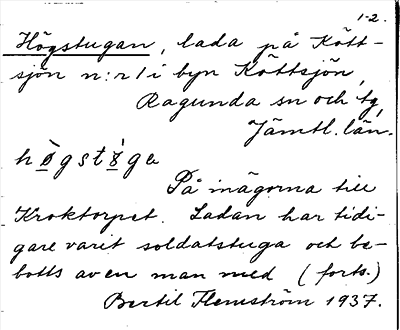 1-2.
Högstugan, lada på Kött-
sjön n:r 1 i byn Köttsjön,
Ragunda sn och tg,
Jämtl. län.
hø̀gstø̀ga
På inägorna till
Kroktorpet. Ladan har tidi-
gare varit soldatstuga och be-
botts av en man med (forts.)
Bertil Flemström 1937.